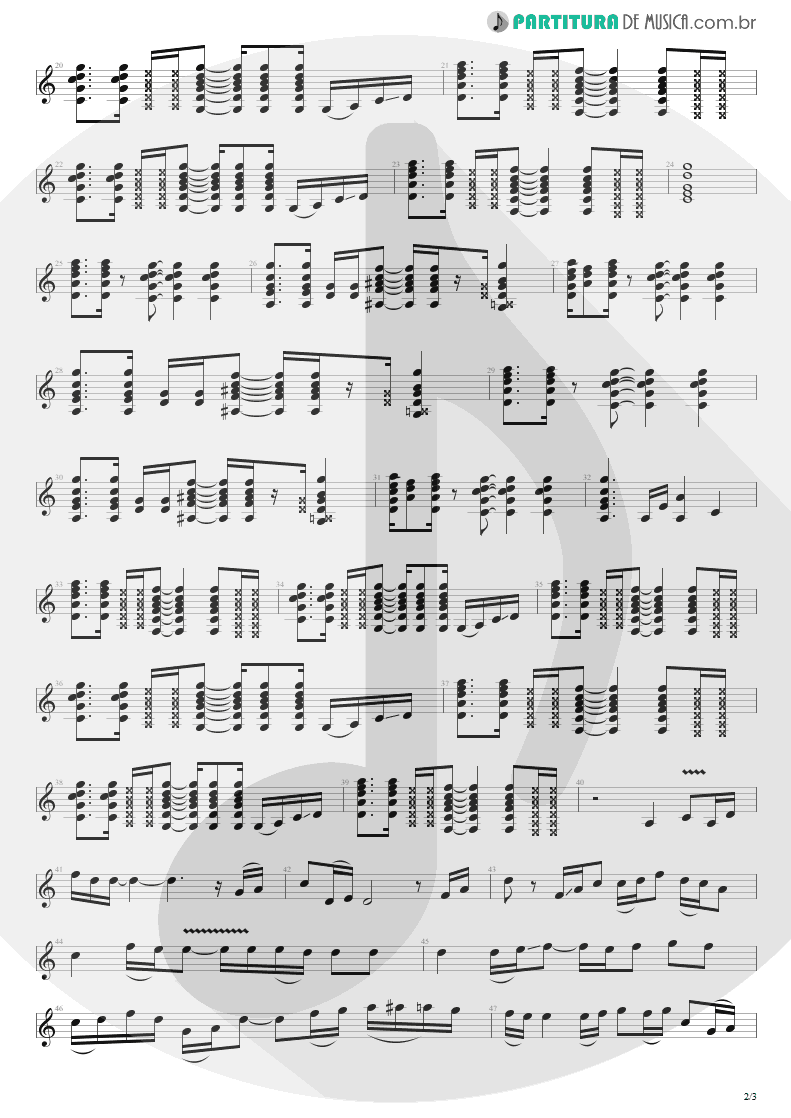 PARTITURA DE MUSICA.com.br
20 21
22 23 24
25 26 27
28 29
30 31 32
33 34 35
36 37
38 39 40
41 42 43
44 45
46 47
2/3